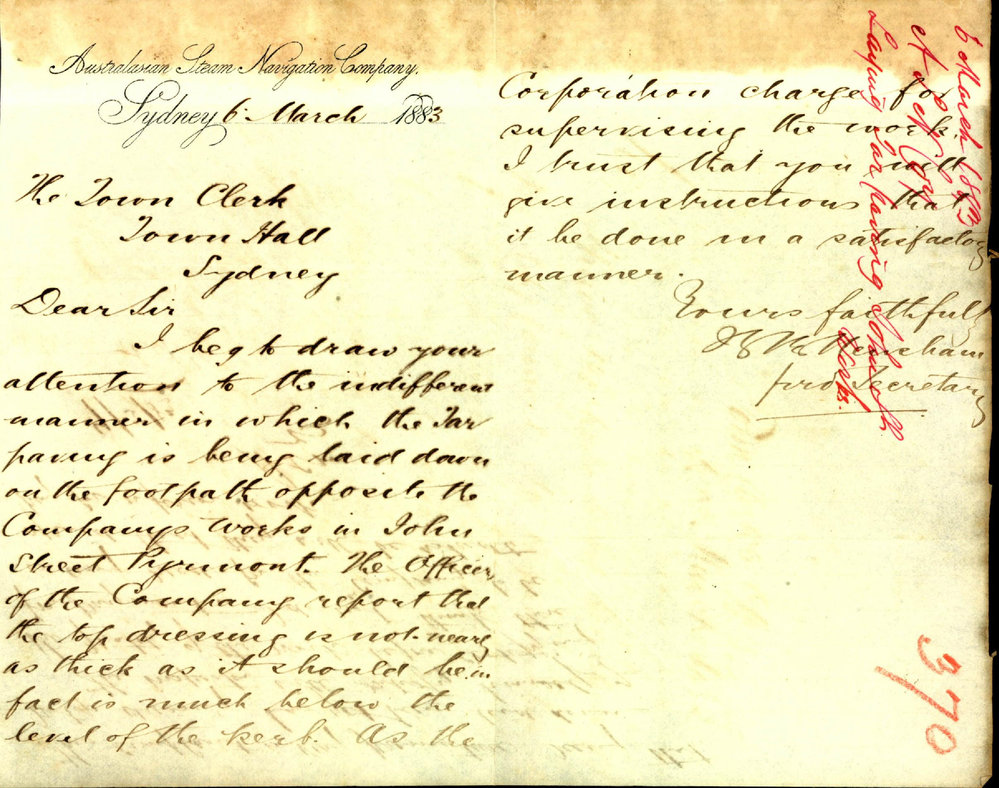 Australasian Steam Navigation Company.
Sydney 6 March 1883
The Town Clerk
Town Hall
Sydney
Dear Sir
I beg to draw your
attention to the indifferent
manner in which the Tar
paving is being laid down
on the footpath opposite the
Companys works in John
Street Pyrmont. The Officers
of the Company report that
the top dressing is not nearly
as thick as it should be in
fact is much below the
level of the kerb. As the
Corporation charge for
supervising the work,
I trust that you will
give instructions that
it be done in a satisfactory
manner.
Yours faithfully
Hencham
pro Secretary
6 March 1883
A S N Coy
Laying Tar paving John St
Works.
370